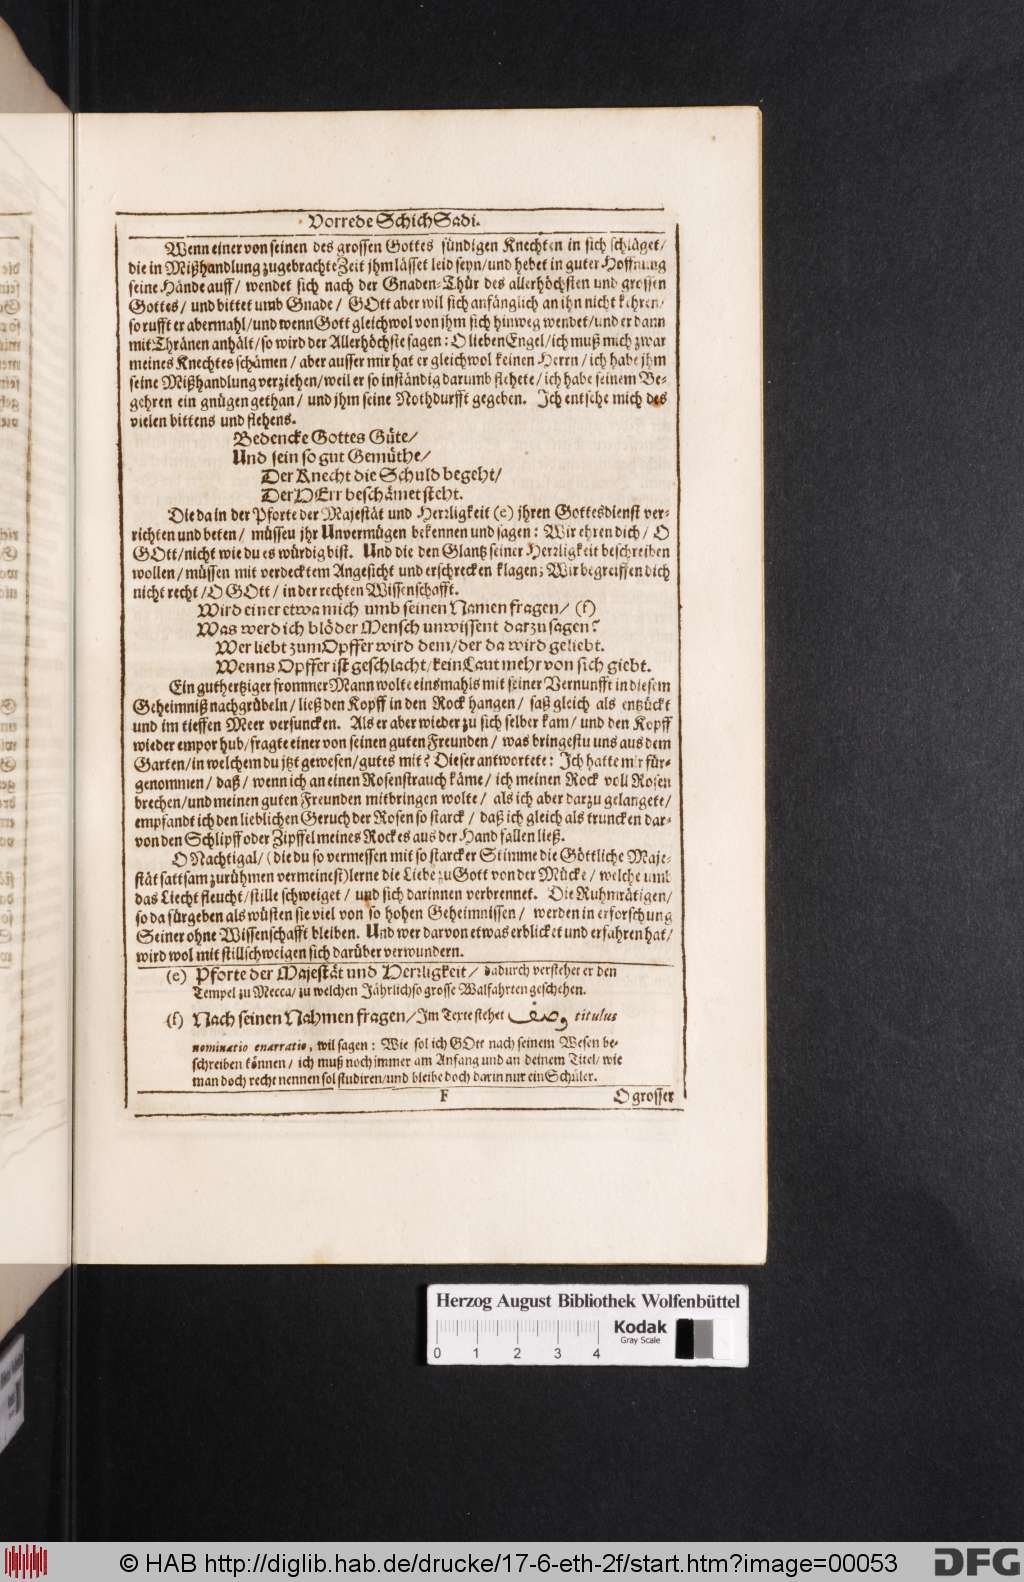 Vorrede Schich Sadi.
Wenn einer von seinen des grossen Gottes sündigen Knechten in sich schläget/
die in Mißhandlung zugebrachte Zeit jhm lässet leid seyn/und hebet in guter Hoffnung
seine Hände auff/ wendet sich nach der Gnaden-Thür des allerhöchsten und grossen
Gottes/ und bittet umb Gnade/ GOtt aber wil sich anfänglich an ihn nicht kehren/
so rufft er abermahl/und wenn Gott gleichwol von jhm sich hinweg wendet/und er dann
mit Thränen anhält/so wird der Allerhöchste sagen: O lieben Engel/ich muß mich zwar
meines Knechtes schämen/ aber ausser mir hat er gleichwol keinen Herrn/ich habe jhm
seine Mißhandlung verziehen/weil er so inständig darumb flehete/ich habe seinem Be-
gehren ein gnügen gethan/ und jhm seine Nothdurfft gegeben. Ich entsehe mich des
vielen bittens und flehens.
Bedencke Gottes Güte/
Und sein so gut Gemüthe/
Der Knecht die Schuld begeht/
Der HErr beschämet steht.
Die da in der Pforte der Majestät und Herrligkeit (e) jhren Gottesdienst ver-
richten und beten/ müssen jhr Unvermügen bekennen und sagen: Wir ehren dich/ O
GOtt/nicht wie du es würdig bist. Und die den Glantz seiner Herrligkeit beschreiben
wollen/müssen mit verdecktem Angesicht und erschrecken klagen; Wir begreiffen dich
nicht recht/O GOtt/ in der rechten Wissenschafft.
Wird einer etwa mich umb seinen Namen fragen/ (f)
Was werd ich blöder Mensch unwissent darzu sagen?
Wer liebt zum Opffer wird dem/der da wird geliebt.
Wenns Opffer ist geschlacht/kein Laut mehr von sich giebt.
Ein guthertziger frommer Mann wolte einsmahls mit seiner Vernunfft in diesem
Geheimniß nachgrübeln/ ließ den Kopff in den Rock hangen/ saß gleich als entzückt
und im tieffen Meer versuncken. Als er aber wieder zu sich selber kam/ und den Kopff
wieder empor hub/fragte einer von seinen guten Freunden/ was bringestu uns aus dem
Garten/in welchem du jtzt gewesen/gutes mit? Dieser antwortete: Ich hatte mir für-
genommen/ daß/ wenn ich an einen Rosenstrauch käme/ ich meinen Rock voll Rosen
brechen/und meinen guten Freunden mitbringen wolte/ als ich aber darzu gelangete/
empfandt ich den lieblichen Geruch der Rosen so starck/ daß ich gleich als truncken dar-
von den Schlipff oder Zipffel meines Rockes aus der Hand fallen ließ.
O Nachtigal/(die du so vermessen mit so starcker Stimme die Göttliche Maje-
stät sattsam zurühmen vermeinest)lerne die Liebe zu Gott von der Mücke/ welche umb
das Liecht fleucht/stille schweiget/ und sich darinnen verbrennet. Die Ruhmrätigen/
so da fürgeben als wüsten sie viel von so hohen Geheimnissen/ werden in erforschung
Seiner ohne Wissenschafft bleiben. Und wer darvon etwas erblicket und erfahren hat/
wird wol mit stillschweigen sich darüber verwundern.
(e) Pforte der Majestät und Herrligkeit/ dadurch verstehet er den
Tempel zu Mecca/ zu welchen Jährlich so grosse Walfahrten geschehen.
(f) Nach seinen Nahmen fragen/Im Texte stehet وصف titulus
nominatio enarratio, wil sagen: Wie sol ich GOtt nach seinem Wesen be-
schreiben können/ ich muß noch immer am Anfang und an deinem Titel/ wie
man doch recht nennen sol studiren/und bleibe doch darin nur ein Schüler.
F
O grosser
Herzog August Bibliothek Wolfenbüttel
Kodak
Gray Scale
0 1 2 3 4
© HAB http://diglib.hab.de/drucke/17-6-eth-2f/start.htm?image=00053
DFG